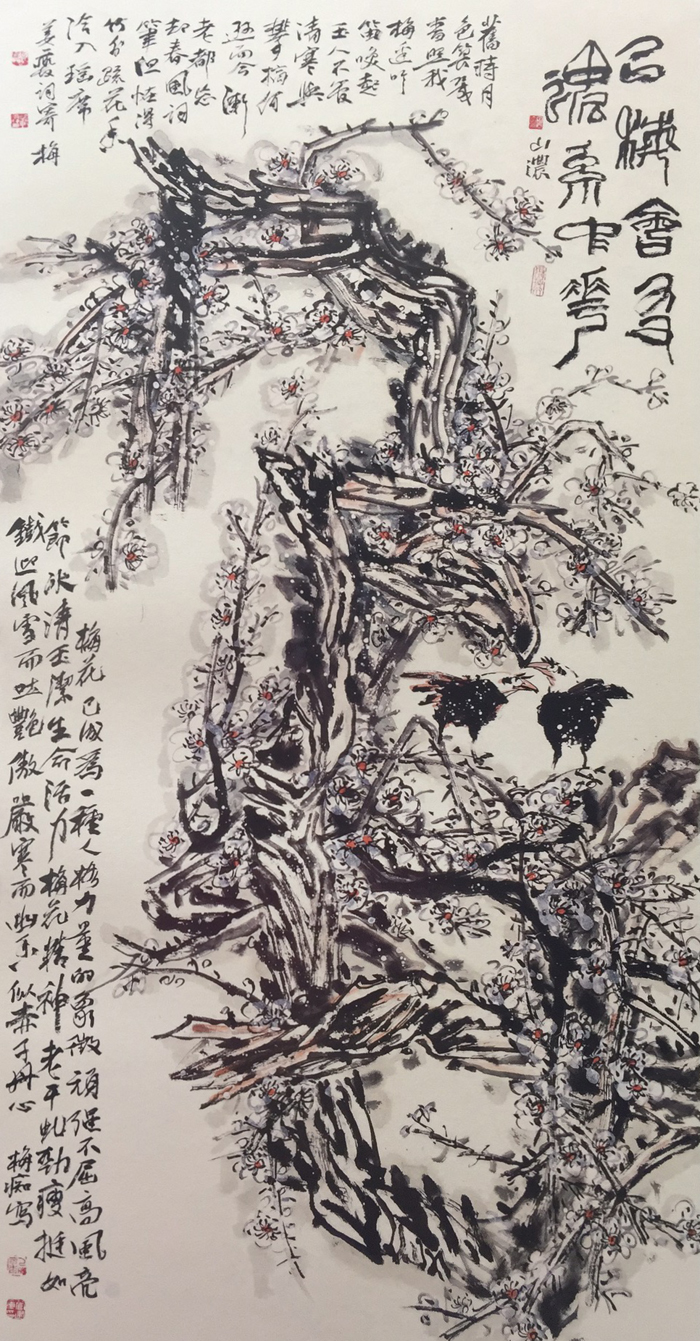 梅會
中華
山濃
舊時月
色算幾
番照我
梅邊吹
笛喚起
玉人不管
清寒與
攀梅何
遜而今漸
老都忘
却春風詞
筆但怪得
竹外疏花香
冷入瑤席
姜夔词寄 梅
梅花已成為一種人格力量的象徵頑强不屈高風亮
節冰清玉潔生命活力梅花精神老干虬勁瘦挺如
鐵迎風雪而吐艷傲嚴寒而幽香似赤子丹心 梅痴写